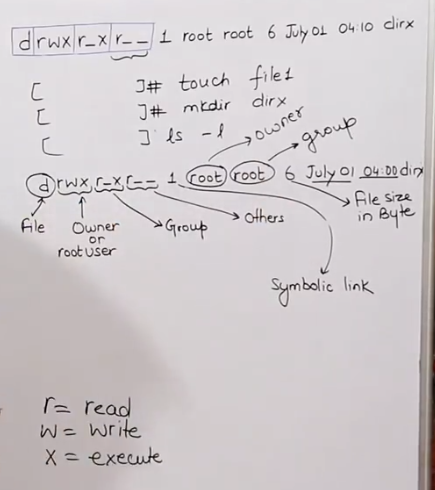 drwxr_xr__ 1 root root 6 July 01 04:10 dirx
[ ]# touch file1
[ ]# mkdir dirx
[ ] ls -l
owner
group
drwxr-xr-- 1 root root 6 July 01 04:00 dirx
File
Owner
or
root user
Group
Others
File size
in Byte
Symbolic link
r= read
w= write
x = execute